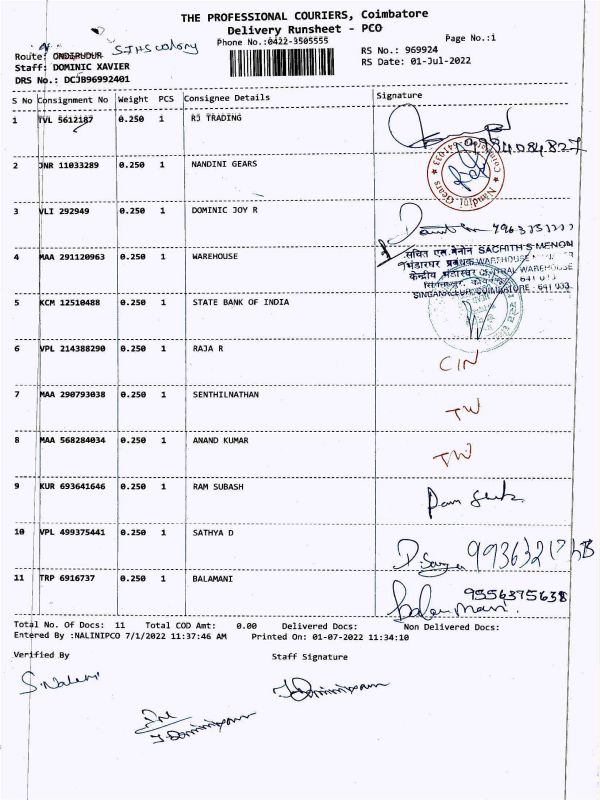 THE PROFESSIONAL COURIERS, Coimbatore
Delivery Runsheet - PCO
Phone No.:0422-3505555
Page No.:1
Route: ONDIPUDUR SIHS colony
RS No.: 969924
Staff: DOMINIC XAVIER
RS Date: 01-Jul-2022
DRS No.: DCJB96992401
S No Consignment No Weight PCS Consignee Details Signature
1 TVL 5612187 0.250 1 RJ TRADING
2 JNR 11033289 0.250 1 NANDINI GEARS
Nandini Gears
3 VLI 292949 0.250 1 DOMINIC JOY R
4 MAA 291120963 0.250 1 WAREHOUSE
सचित एस.मेनोन SACHITH S MENON
भंडारघर प्रबंधक WAREHOUSE
केन्द्रीय भंडारघर CENTRAL WAREHOUSE
SINGANALLUR, COIMBATORE - 641 033
5 KCM 12510488 0.250 1 STATE BANK OF INDIA
6 VPL 214388290 0.250 1 RAJA R CIN
7 MAA 290793038 0.250 1 SENTHILNATHAN TW
8 MAA 568284034 0.250 1 ANAND KUMAR TW
9 KUR 693641646 0.250 1 RAM SUBASH
10 VPL 499375441 0.250 1 SATHYA D
11 TRP 6916737 0.250 1 BALAMANI 9556375638
Total No. Of Docs: 11 Total COD Amt: 0.00 Delivered Docs: Non Delivered Docs:
Entered By :NALINIPCO 7/1/2022 11:37:46 AM Printed On: 01-07-2022 11:34:10
Verified By Staff Signature
S.Nalini